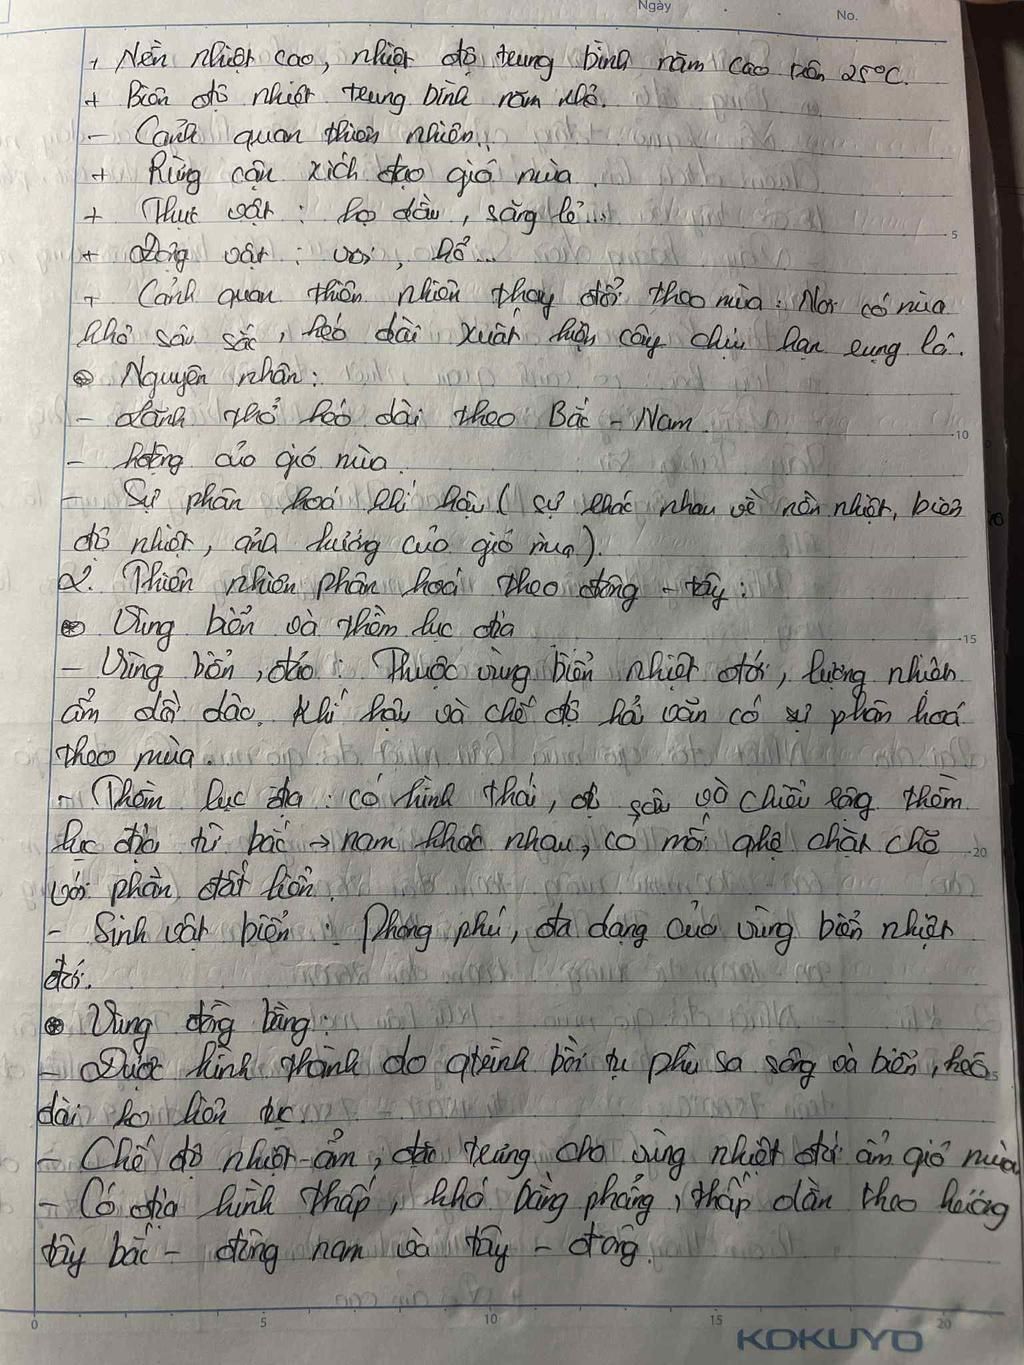 Ngày
No.
+ Nền nhiệt cao, nhiệt độ trung bình năm cao trên 25°C.
+ Biên độ nhiệt trung bình năm nhỏ.
- Cảnh quan thiên nhiên..
+ Rừng cận xích đạo gió mùa.
+ Thực vật : họ dầu, săng lẻ...
+ Động vật : voi, hổ...
+ Cảnh quan thiên nhiên thay đổi theo mùa : Nơi có mùa
khô sâu sắc, kéo dài xuất hiện cây chịu hạn rụng lá.
Nguyên nhân :
- Lãnh thổ kéo dài theo Bắc - Nam.
- hướng của gió mùa.
- Sự phân hoá khí hậu ( sự khác nhau về nền nhiệt, biên
độ nhiệt, ảnh hưởng của gió mùa).
2. Thiên nhiên phân hoá theo đông - tây :
Vùng biển và thềm lục địa
- Vùng biển, đảo : Thuộc vùng biển nhiệt đới, lượng nhiệt
ẩm dồi dào. Khí hậu và chế độ hải văn có sự phân hoá
theo mùa.
- Thềm lục địa : có hình thái, độ sâu và chiều rộng thềm
lục địa từ bắc → nam khác nhau, có mối qhệ chặt chẽ
với phần đất liền.
- Sinh vật biển : Phong phú, đa dạng của vùng biển nhiệt
đới.
Vùng đồng bằng :
- Được hình thành do qtrình bồi tụ phù sa sông và biển, kéo
dài ko liên tục.
- Chế độ nhiệt-ẩm, đặc trưng cho vùng nhiệt đới ẩm gió mùa
- Có địa hình thấp, khá bằng phẳng, thấp dần theo hướng
tây bắc - đông nam và tây - đông.
5
10
15
20
0 5 10 15 20
KOKUYO